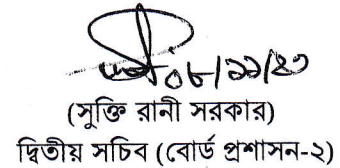 ০৮/১১/২৩
(সুক্তি রানী সরকার)
দ্বিতীয় সচিব (বোর্ড প্রশাসন-২)